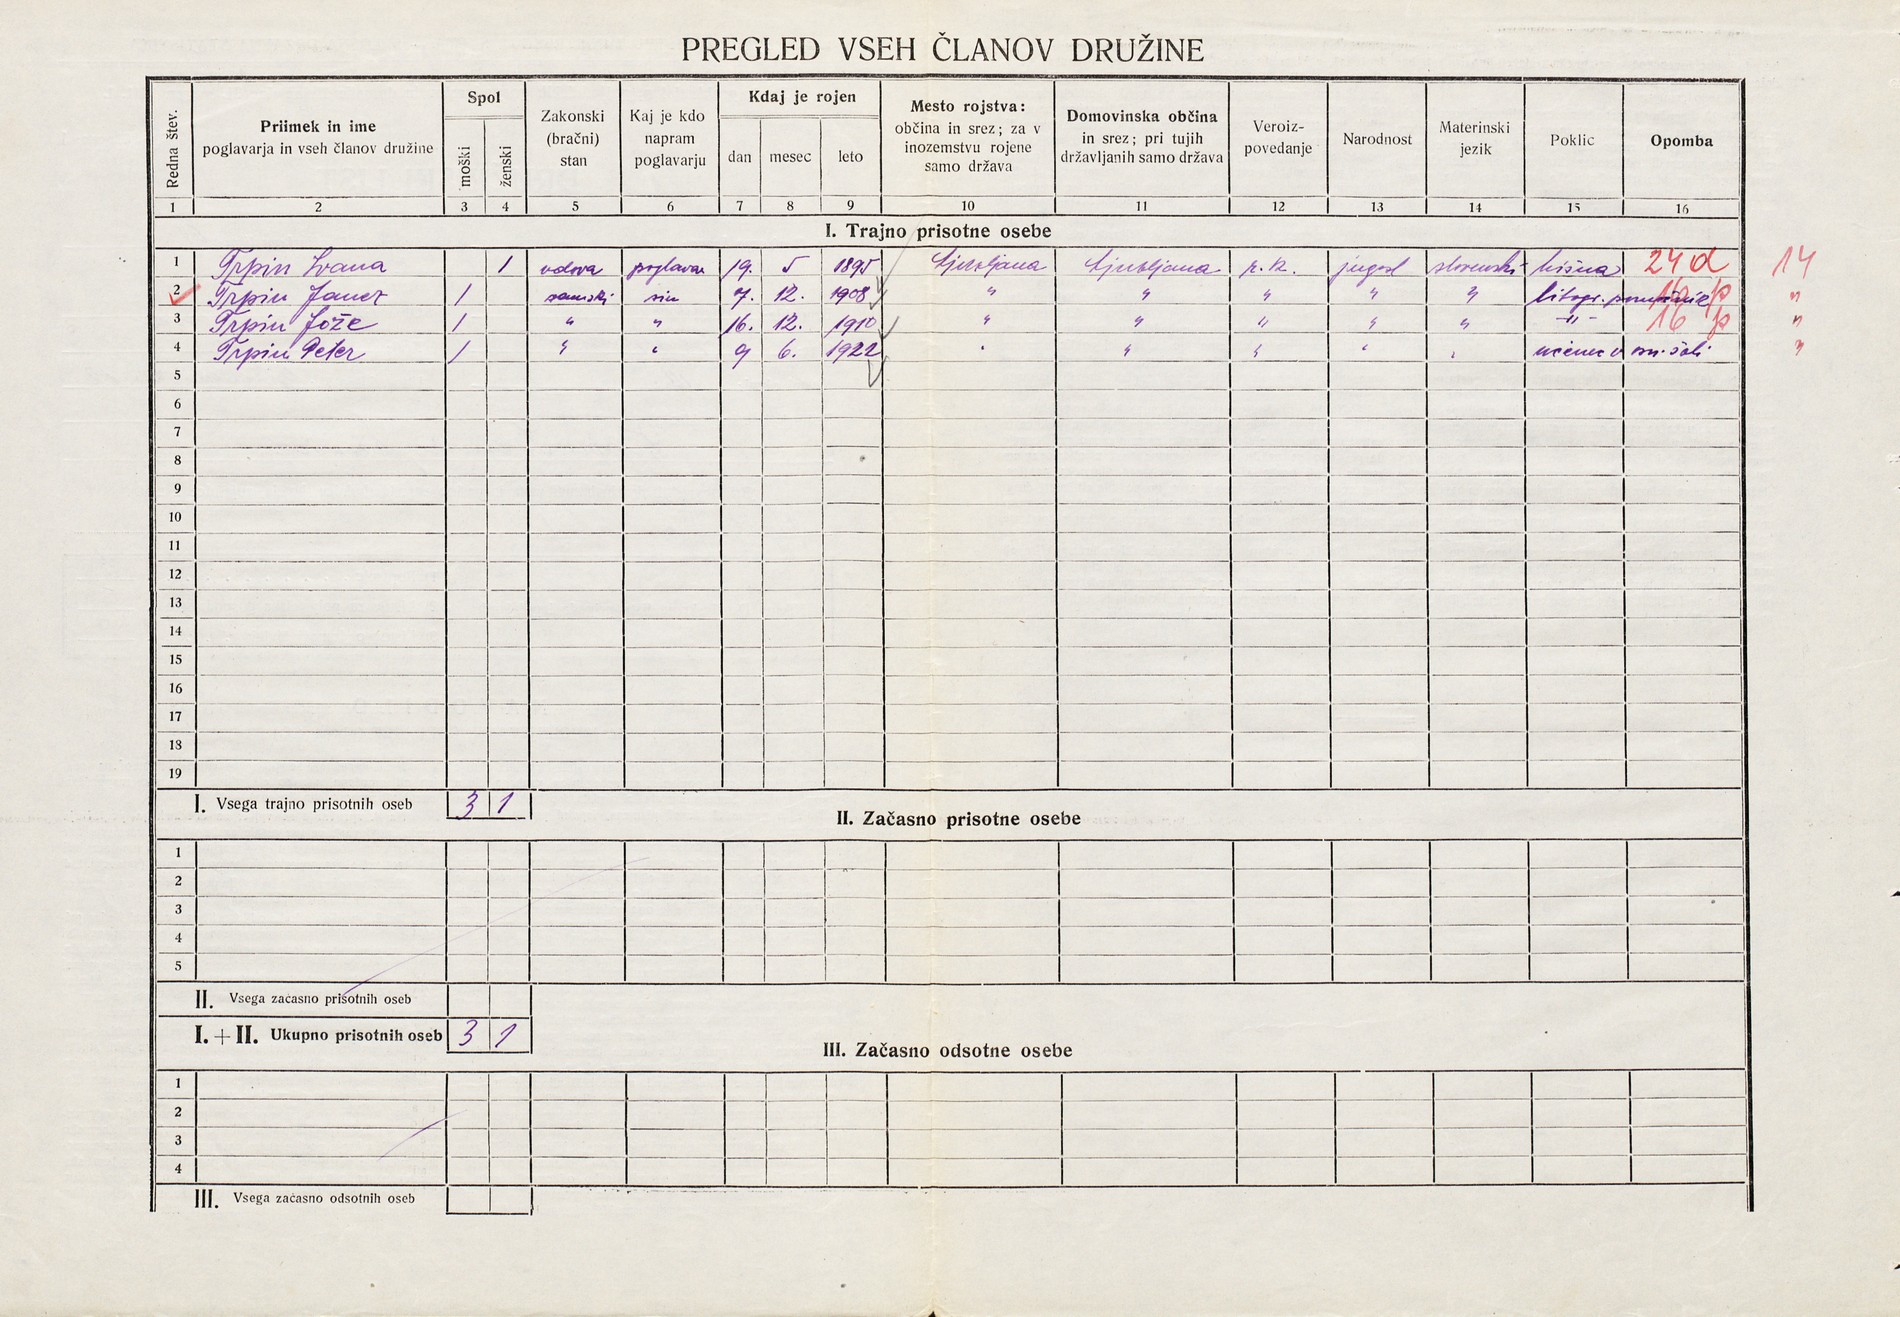 PREGLED VSEH ČLANOV DRUŽINE
Redna štev.
Priimek in ime
poglavarja in vseh članov družine
Spol
moški
ženski
Zakonski
(bračni)
stan
Kaj je kdo
napram
poglavarju
Kdaj je rojen
dan mesec leto
Mesto rojstva:
občina in srez; za v
inozemstvu rojene
samo država
Domovinska občina
in srez; pri tujih
državljanih samo država
Veroiz-
povedanje
Narodnost
Materinski
jezik
Poklic
Opomba
1 2 3 4 5 6 7 8 9 10 11 12 13 14 15 16
I. Trajno prisotne osebe
1 Trpin Ivana 1 vdova poglavar 19. 5 1895 Ljubljana Ljubljana r. k. jugosl slovenski hišna 24 d 14
2 Trpin Janez 1 samski sin 7. 12. 1908 " " " " " litogr. pomočnik 16 p "
3 Trpin Jože 1 " " 16. 12. 1910 " " " " " -"- 16 p "
4 Trpin Peter 1 " " 9 6. 1922 " " " " " učenec v sr. šoli "
5
6
7
8
9
10
11
12
13
14
15
16
17
18
19
I. Vsega trajno prisotnih oseb 3 1
II. Začasno prisotne osebe
1
2
3
4
5
II. Vsega začasno prisotnih oseb
I. + II. Ukupno prisotnih oseb 3 1
III. Začasno odsotne osebe
1
2
3
4
III. Vsega začasno odsotnih oseb